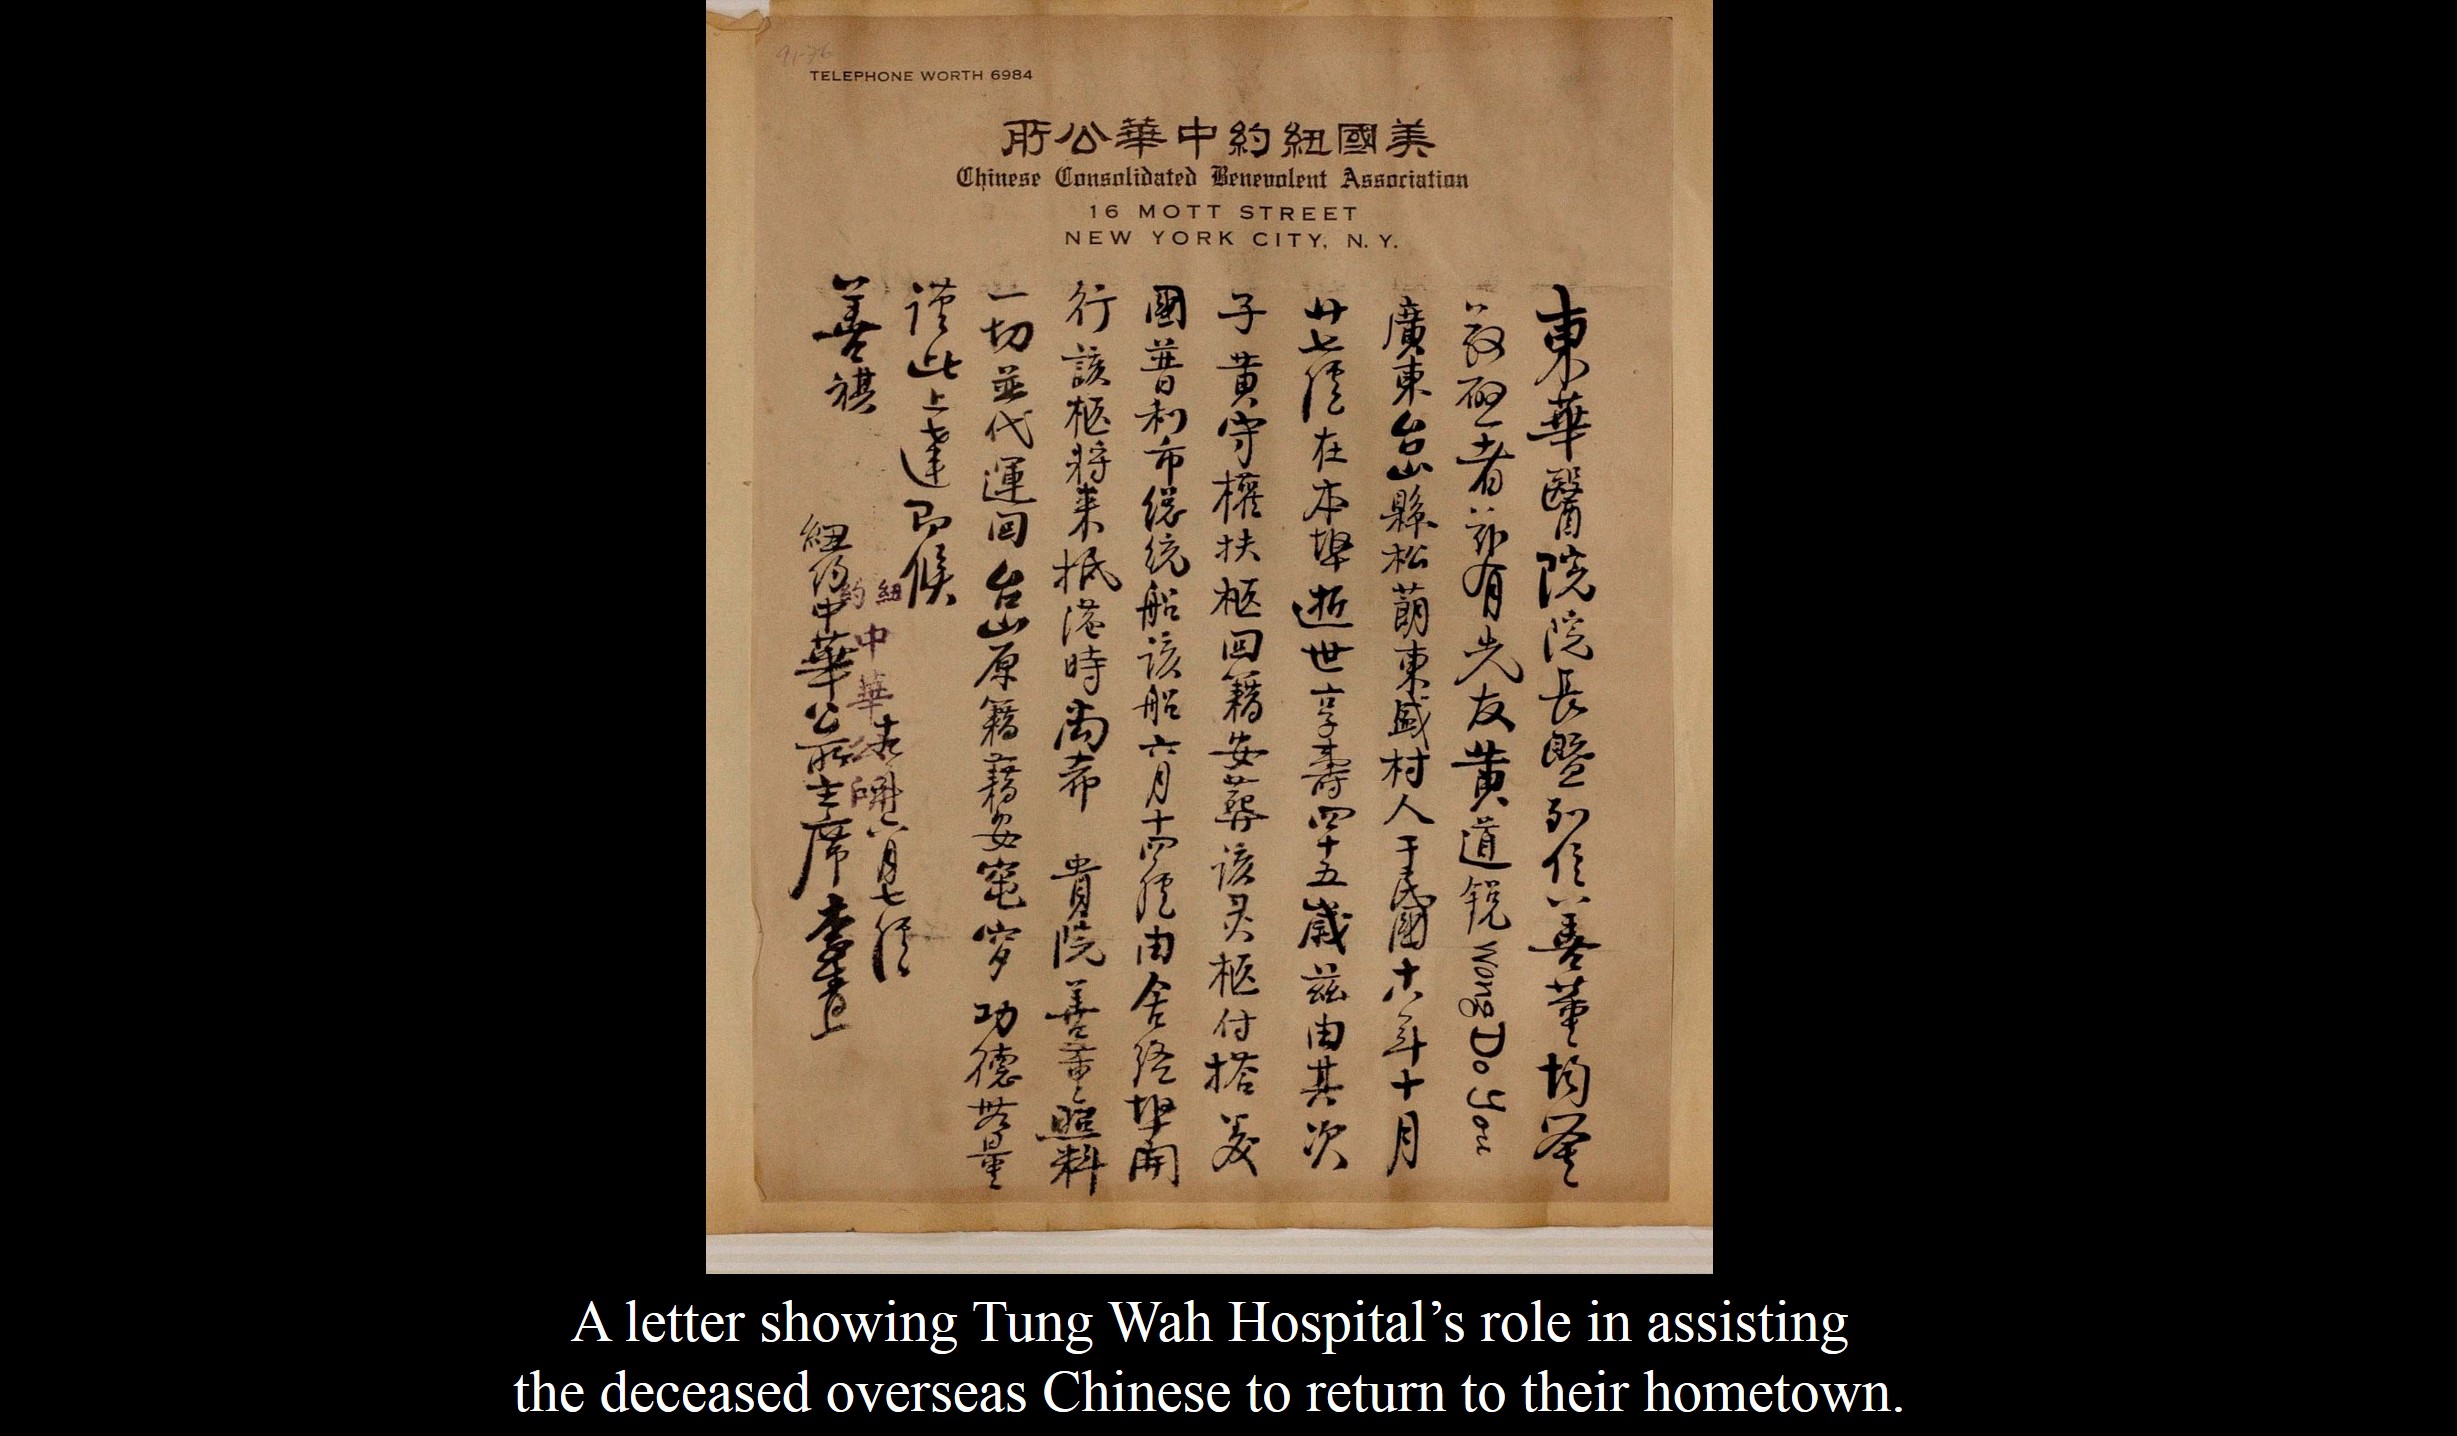 TELEPHONE WORTH 6984
美國紐約中華公所
Chinese Consolidated Benevolent Association
16 MOTT STREET
NEW YORK CITY, N. Y.
東華醫院院長暨列位善董均鑒
敬啟者茲有先友黃道銳Wong Do You
廣東台山縣松蓢東盛村人于民國十六年十月
廿七號在本埠逝世享壽四十五歲茲由其次
子黃守權扶柩回籍安葬該灵柩付搭美
國普利市總統船該船六月十四號由舍路埠開
行該柩將来抵港時尚希 貴院善董照料
一切並代運回台山原籍藉安窀穸功德無量
謹此上達即候
善祺
六月七號
紐約中華公所主席李青上
紐約
中華
A letter showing Tung Wah Hospital’s role in assisting
the deceased overseas Chinese to return to their hometown.